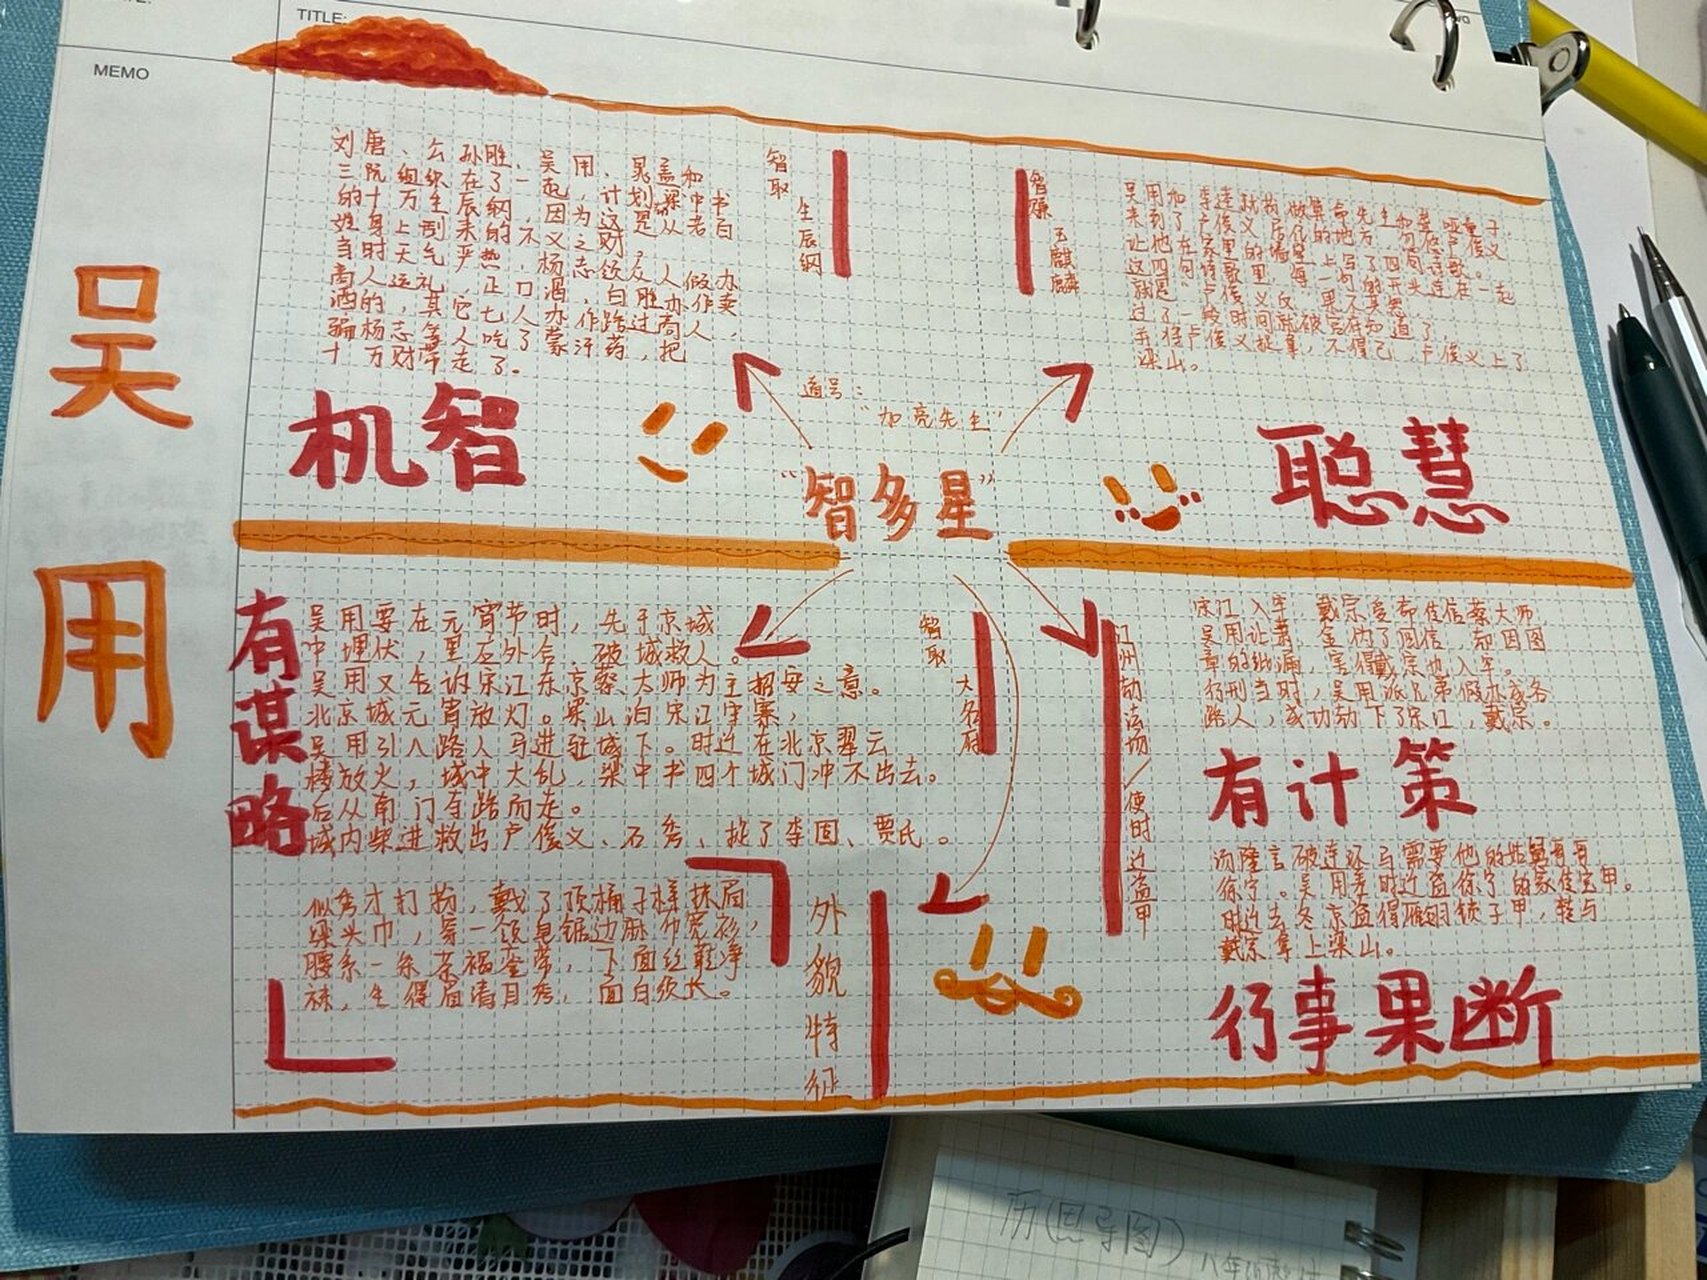 TITLE:
MEMO
吴用
刘唐、公孙胜、吴用、晁盖和
三阮组织在了一起，计划梁中书
的十万生辰纲，因为这是从老百
姓身上刮来的不义之财，
当时天气严热，杨志领众人假办
商人运礼，正口渴，白胜办作卖
酒的，其它七人办作路过商人，
骗杨志等人吃了蒙汗药，把
十万财带走了。
智取
生辰纲
机智
智赚
玉麒麟
吴用和李逵就扮做算命先生和聋哑童子
来到了卢俊义居住的地方，卢俊义
让他在家里的墙壁上写了四句诗歌。
这四句诗歌里，每一句的开头连在一起
就是"卢俊义反"，果不其然，
过了一段时间就被官府知道了，
并将卢俊义捉拿，不得已，卢俊义上了
梁山。
聪慧
道号：
"加亮先生"
"智多星"
有谋略
吴用要在元宵节时，先于京城
中埋伏，里应外合，破城救人。
吴用又告诉宋江东京蔡太师为主招安之意。
北京城元宵放灯。梁山泊宋江守寨，
吴用引八路人马进驻城下。时迁在北京翠云
楼放火，城中大乱，梁中书四个城门冲不出去。
后从南门夺路而走。
城内柴进救出卢俊义、石秀、捉了李固、贾氏。
智取
大名府
江州劫法场/使时迁盗甲
宋江入牢，戴宗受命往信蔡大师
吴用让萧、金伪了回信，却因图
章的纰漏，害得戴宗也入牢。
行刑当时，吴用派兄弟假办成各
路人，成功劫下了宋江，戴宗。
有计策
汤隆言破连环马需要他的姑舅哥哥
徐宁。吴用差时迁盗徐宁的家传宝甲。
时迁去东京盗得雁翎锁子甲，转与
戴宗拿上梁山。
行事果断
似秀才打扮，戴了顶桶子样抹眉
梁头巾，穿一领皂锯边麻布宽衫，
腰系一条茶褐銮带，下面丝鞋净
袜，生得眉清目秀，面白须长。
外貌特征
历(思导图)